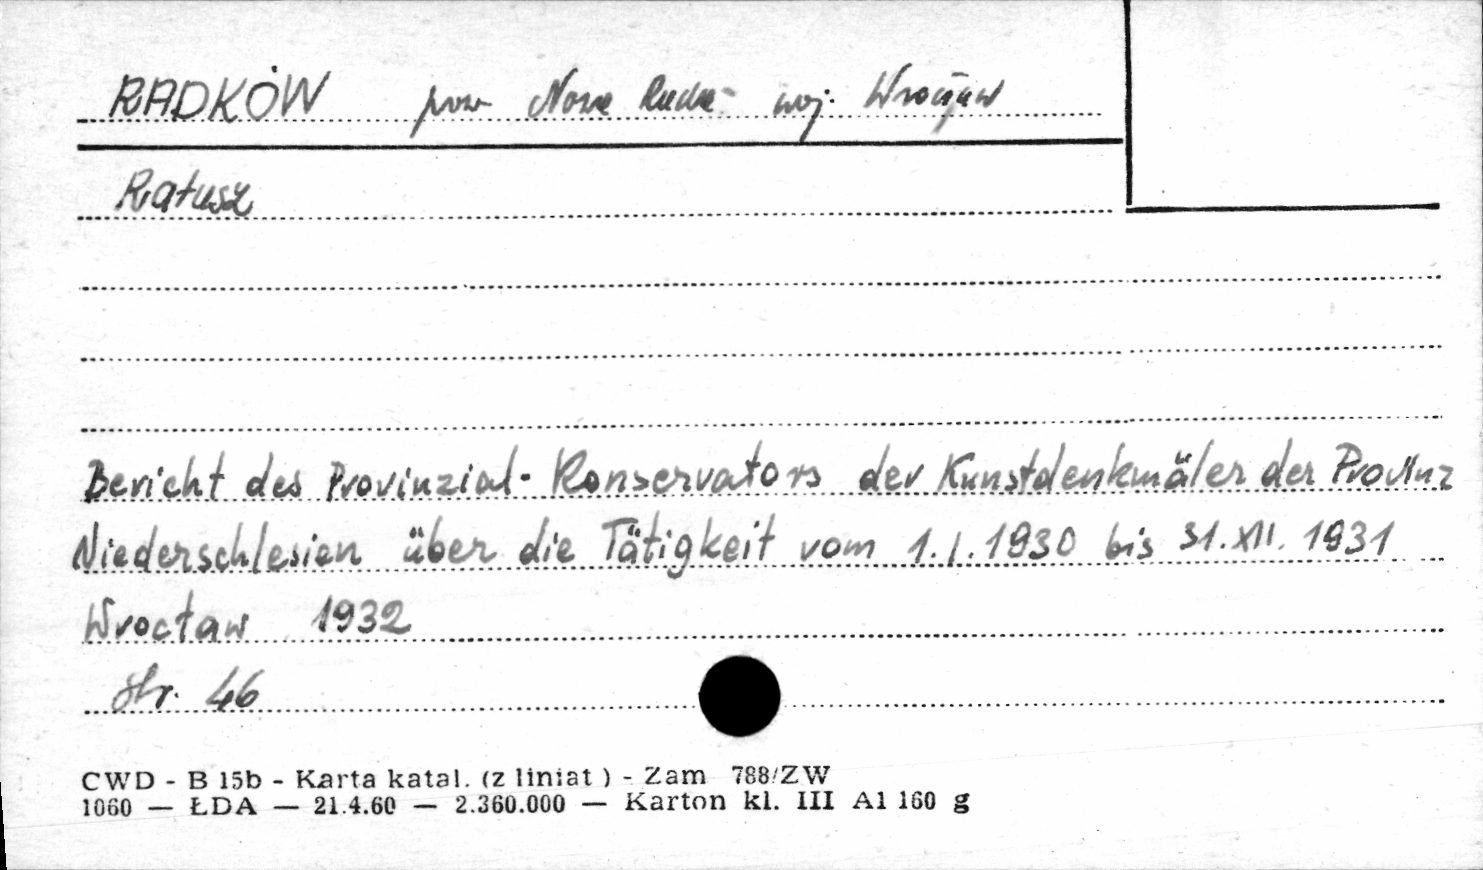 RADKÓW pow Nowa Ruda woj. Wrocław
Ratusz
Bericht des Provinzial-Konservators der Kunstdenkmäler der Provinz
Niederschlesien über die Tätigkeit vom 1.I.1930 bis 31.XII.1931
Wrocław 1932
Str. 46
CWD - B 15b - Karta katal. (z liniat ) - Zam 788/ZW
1060 — ŁDA — 21.4.60 — 2.360.000 — Karton kl. III A1 160 g